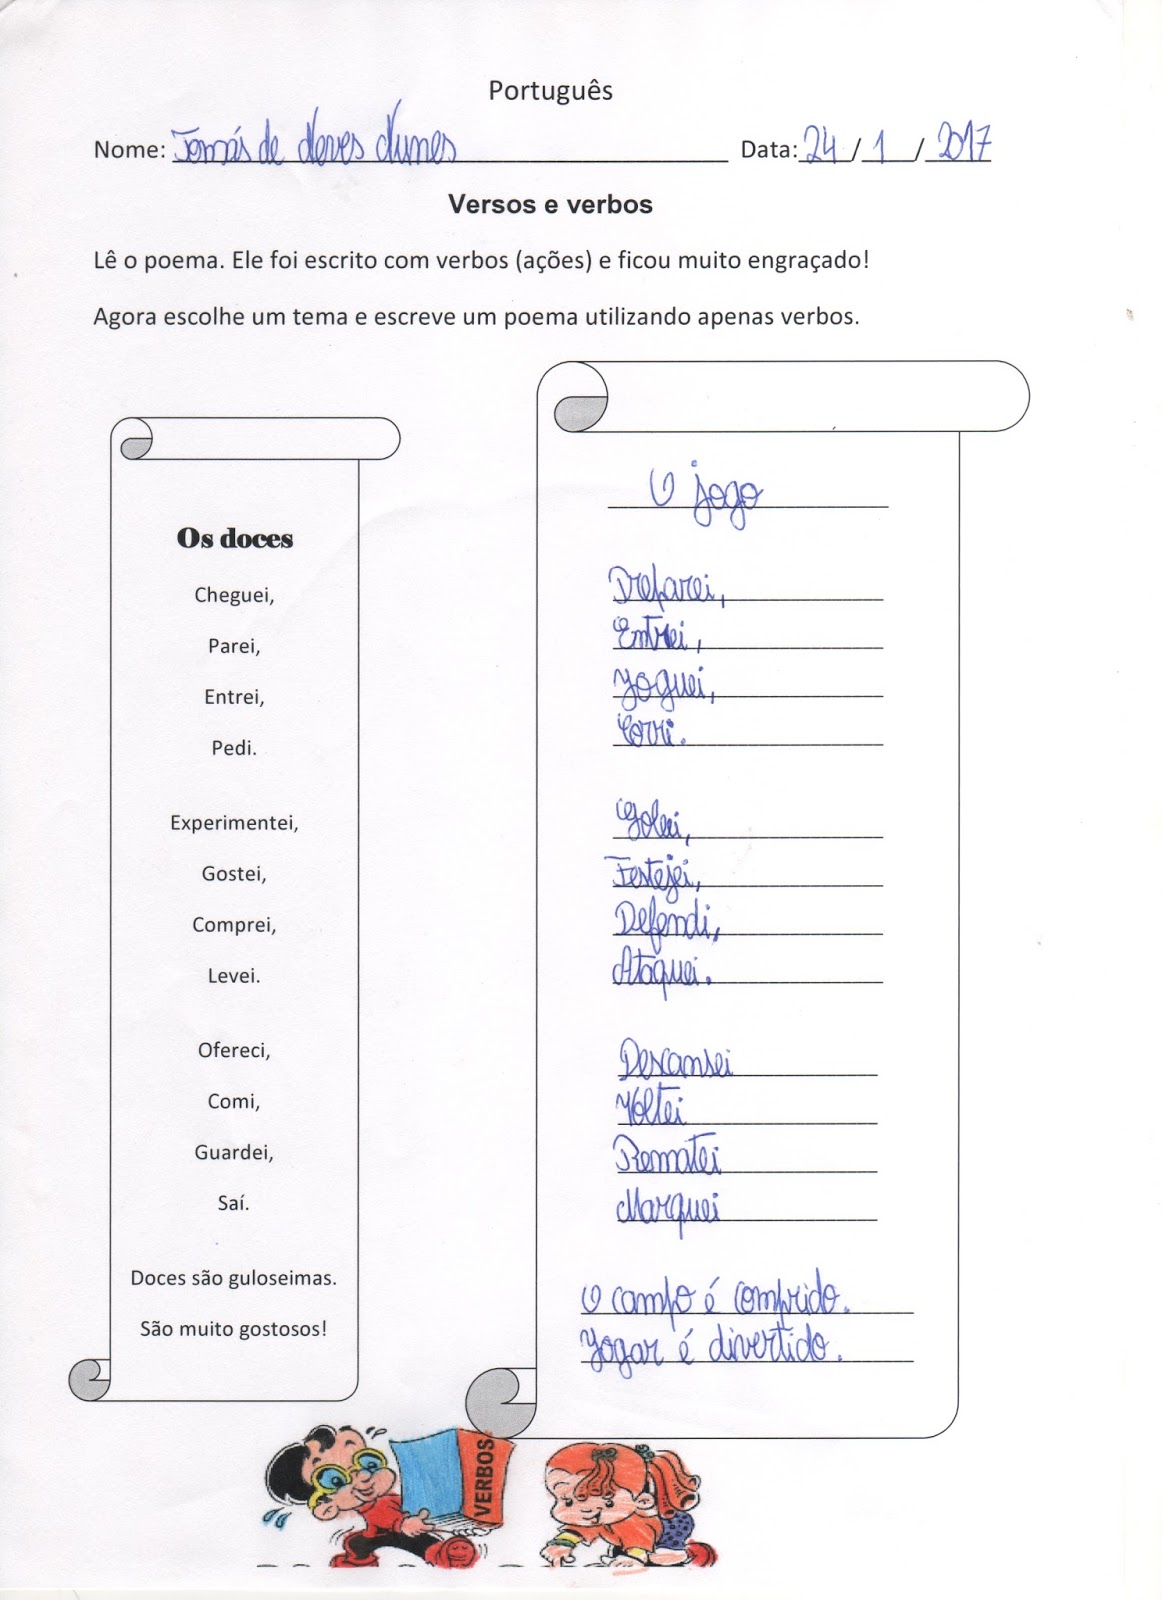 Português
Nome: Tomás de Neves Nunes Data: 24/1/2017
Versos e verbos
Lê o poema. Ele foi escrito com verbos (ações) e ficou muito engraçado!
Agora escolhe um tema e escreve um poema utilizando apenas verbos.
Os doces
Cheguei,
Parei,
Entrei,
Pedi.
Experimentei,
Gostei,
Comprei,
Levei.
Ofereci,
Comi,
Guardei,
Saí.
Doces são guloseimas.
São muito gostosos!
O jogo
Preparei,
Entrei,
Joguei,
Corri.
Golei,
Festejei,
Defendi,
Ataquei.
Descansei
Voltei
Rematei
Marquei
O campo é comprido.
Jogar é divertido.
VERBOS